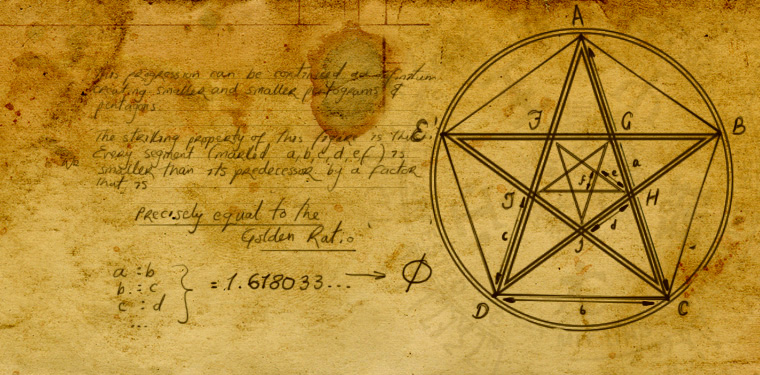 This progression can be continued ad infinitum
creating smaller and smaller pentagrams &
pentagons.
The striking property of this figure is this.
Every segment (marked a,b,c,d,e,f) is
smaller than its predecessor by a factor
that is
Precisely equal to the
Golden Ratio
a : b
b : c
c : d
...
= 1.618033... → Ø
A
E
F
G
B
a
f
e
I
H
c
d
J
D
b
C